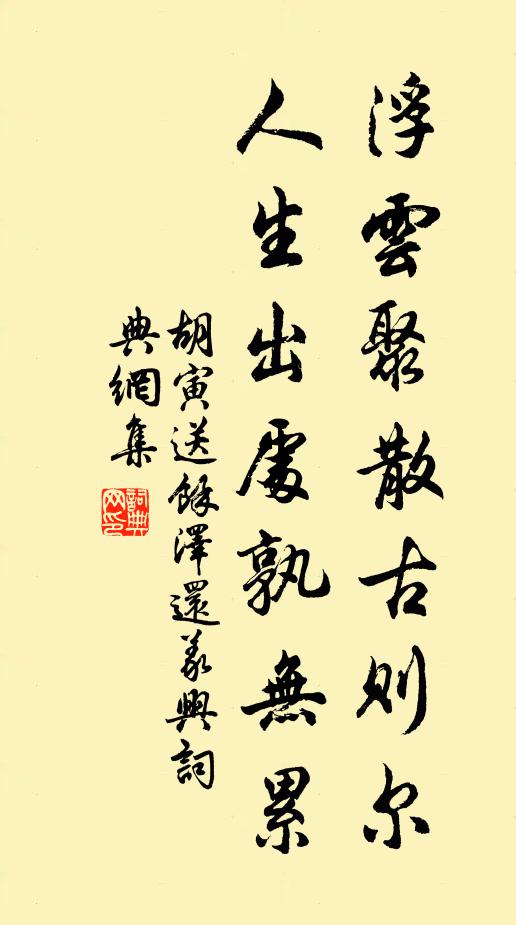 浮雲聚散古則尔
人生出處孰無累
胡寅送餘澤還義興詞
典網集
詞典
网印